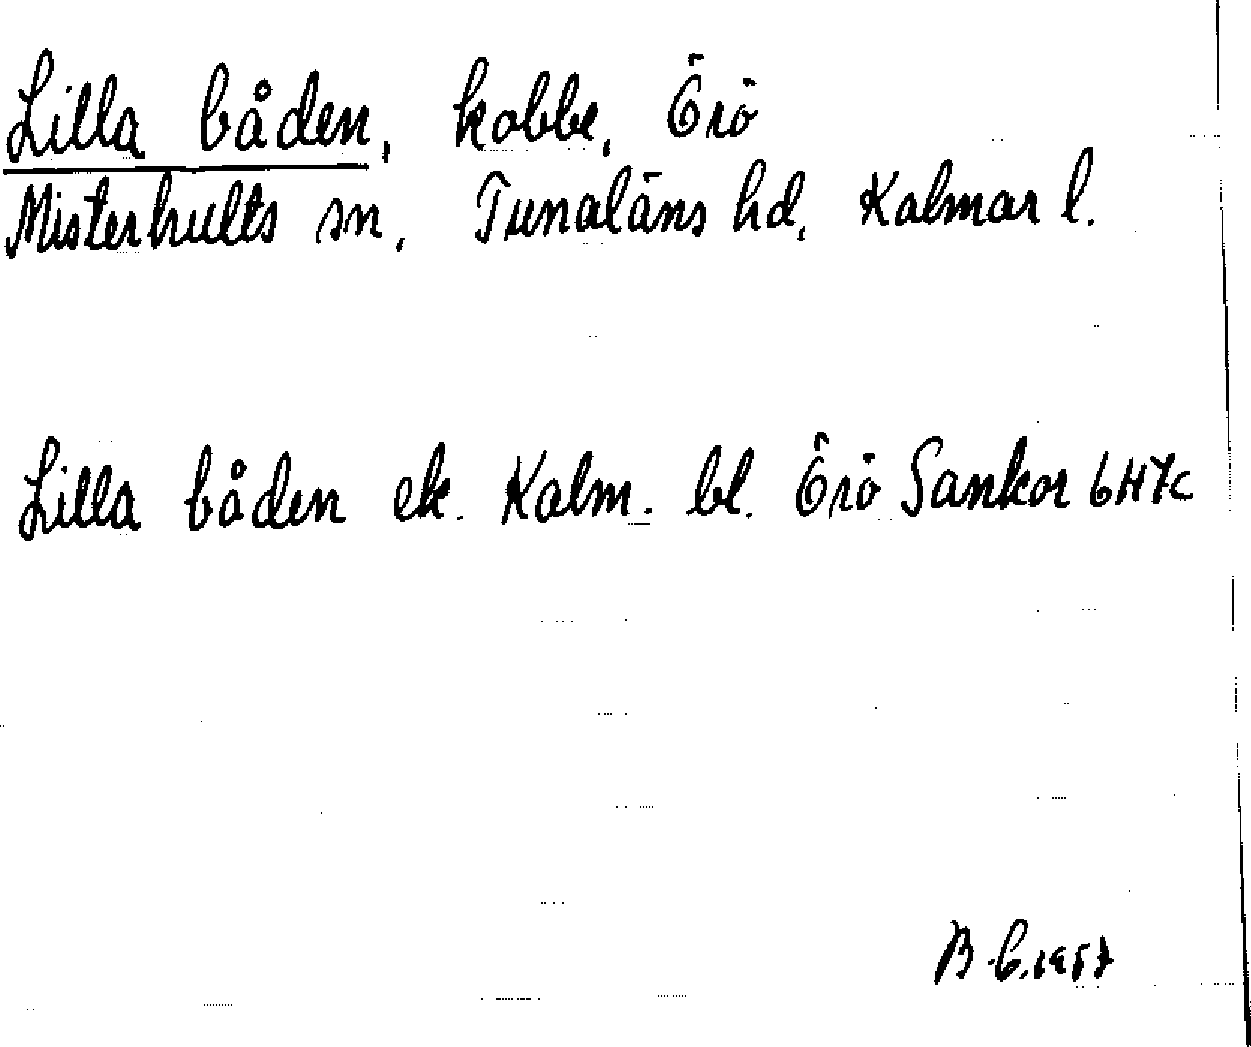 Lilla båden, kobbe, Örö
Misterhults sn, Tunaläns hd, Kalmar l.
Lilla båden ek. Kalm. bl. Örö Sankor 6H7c